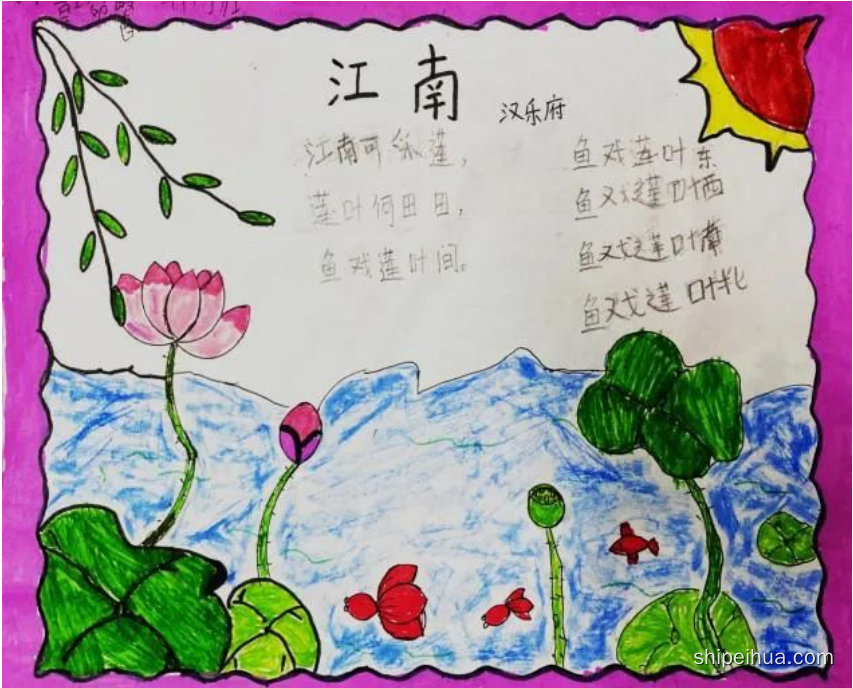 江南
汉乐府
江南可采莲，
莲叶何田田，
鱼戏莲叶间。
鱼戏莲叶东
鱼戏莲叶西
鱼戏莲叶南
鱼戏莲叶北
shipeihua.com